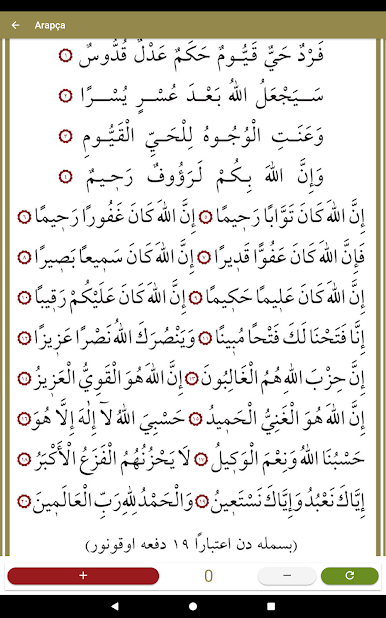 Arapça
فَرْدٌ حَيٌّ قَيُّومٌ حَكَمٌ عَدْلٌ قُدُّوسٌ ١
سَيَجْعَلُ اللهُ بَعْدَ عُسْرٍ يُسْرًا ٢
وَعَنَتِ الْوُجُوهُ لِلْحَيِّ الْقَيُّومِ ٣
وَإِنَّ اللهَ بِكُمْ لَرَؤُوفٌ رَحِيمٌ ٤
إِنَّ اللهَ كَانَ تَوَّابًا رَحِيمًا ٥ إِنَّ اللهَ كَانَ غَفُورًا رَحِيمًا ٦
فَإِنَّ اللهَ كَانَ عَفُوًّا قَدِيرًا ٧ إِنَّ اللهَ كَانَ سَمِيعًا بَصِيرًا ٨
إِنَّ اللهَ كَانَ عَلِيمًا حَكِيمًا ٩ إِنَّ اللهَ كَانَ عَلَيْكُمْ رَقِيبًا ١٠
إِنَّا فَتَحْنَا لَكَ فَتْحًا مُبِينًا ١١ وَيَنْصُرَكَ اللهُ نَصْرًا عَزِيزًا ١٢
إِنَّ حِزْبَ اللهِ هُمُ الْغَالِبُونَ ١٣ إِنَّ اللهَ هُوَ الْقَوِيُّ الْعَزِيزُ ١٤
إِنَّ اللهَ هُوَ الْغَنِيُّ الْحَمِيدُ ١٥ حَسْبِيَ اللهُ لَآ إِلٰهَ إِلَّا هُوَ ١٦
حَسْبُنَا اللهُ وَنِعْمَ الْوَكِيلُ ١٧ لَا يَحْزُنُهُمُ الْفَزَعُ الْأَكْبَرُ ١٨
إِيَّاكَ نَعْبُدُ وَإِيَّاكَ نَسْتَعِينُ ١٩ وَالْحَمْدُ لِلهِ رَبِّ الْعَالَمِينَ ٢٠
(بسمله دن اعتبارًا ١٩ دفعه اوقونور)
+ 0 −